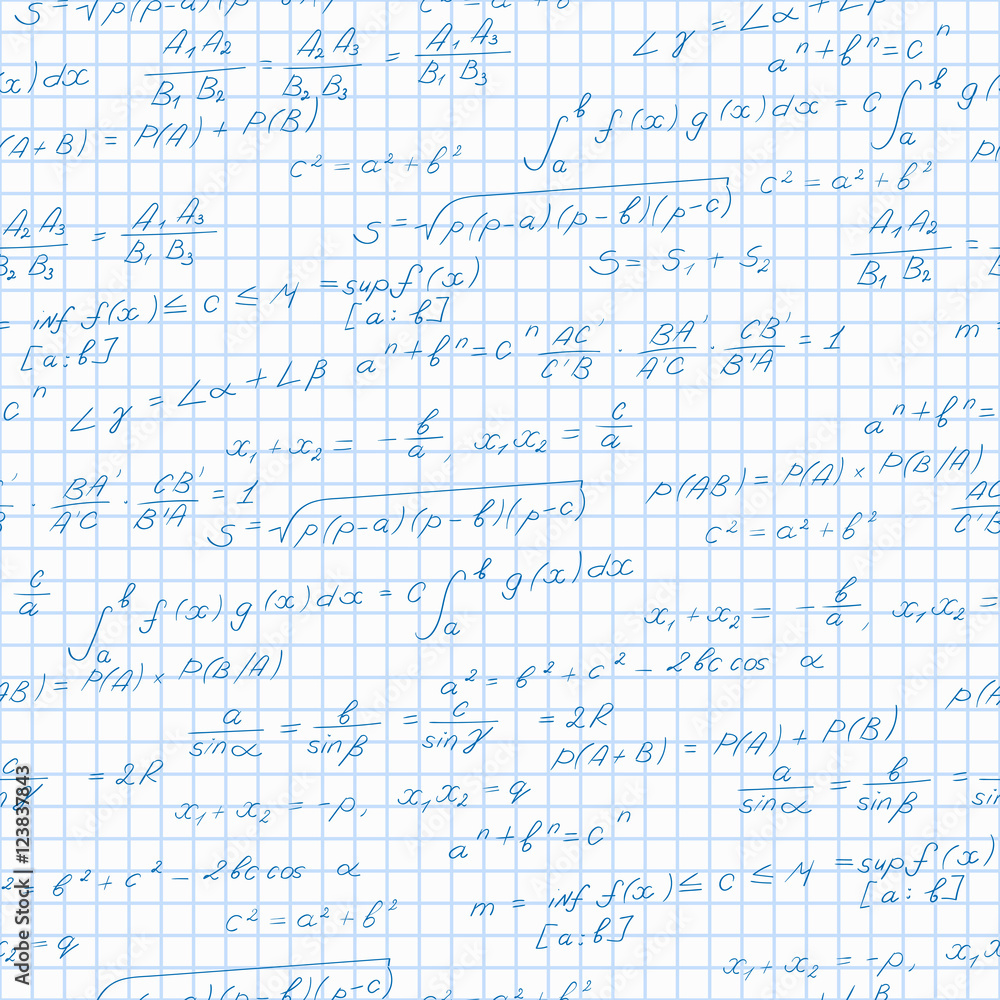 S = √p(p-a)(p-b)(p-c) c² = a² + b² ∠γ = ∠α + ∠β
A₁A₂/B₁B₂ = A₂A₃/B₂B₃ = A₁A₃/B₁B₃ aⁿ + bⁿ = cⁿ
(x)dx
∫ₐᵇ f(x)g(x)dx = C ∫ₐᵇ g(
(A+B) = P(A) + P(B) P(
c² = a² + b² c² = a² + b²
A₂A₃/B₂B₃ = A₁A₃/B₁B₃ S = √p(p-a)(p-b)(p-c) A₁A₂/B₁B₂ =
S = S₁ + S₂
= inf f(x) ≤ C ≤ M = sup f(x) m =
[a:b] [a:b]
aⁿ + bⁿ = cⁿ AC'/C'B · BA'/A'C · CB'/B'A = 1
cⁿ ∠γ = ∠α + ∠β aⁿ + bⁿ =
x₁ + x₂ = -b/a, x₁x₂ = c/a
P(AB) = P(A) × P(B/A)
· BA'/A'C · CB'/B'A = 1 S = √p(p-a)(p-b)(p-c) c² = a² + b² AC'/C'B
c/a ∫ₐᵇ f(x)g(x)dx = C ∫ₐᵇ g(x)dx x₁ + x₂ = -b/a, x₁x₂ =
AB) = P(A) × P(B/A) a² = b² + c² - 2bc cos α P(A
a/sinα = b/sinβ = c/sinγ = 2R P(A+B) = P(A) + P(B)
= 2R a/sinα = b/sinβ =
x₁ + x₂ = -p, x₁x₂ = q
aⁿ + bⁿ = cⁿ
b² + c² - 2bc cos α m = inf f(x) ≤ C ≤ M = sup f(x)
[a:b] [a:b]
c² = a² + b²
= q x₁ + x₂ = -p,
p(p-b)(p-c)
Adobe Stock | #123837843